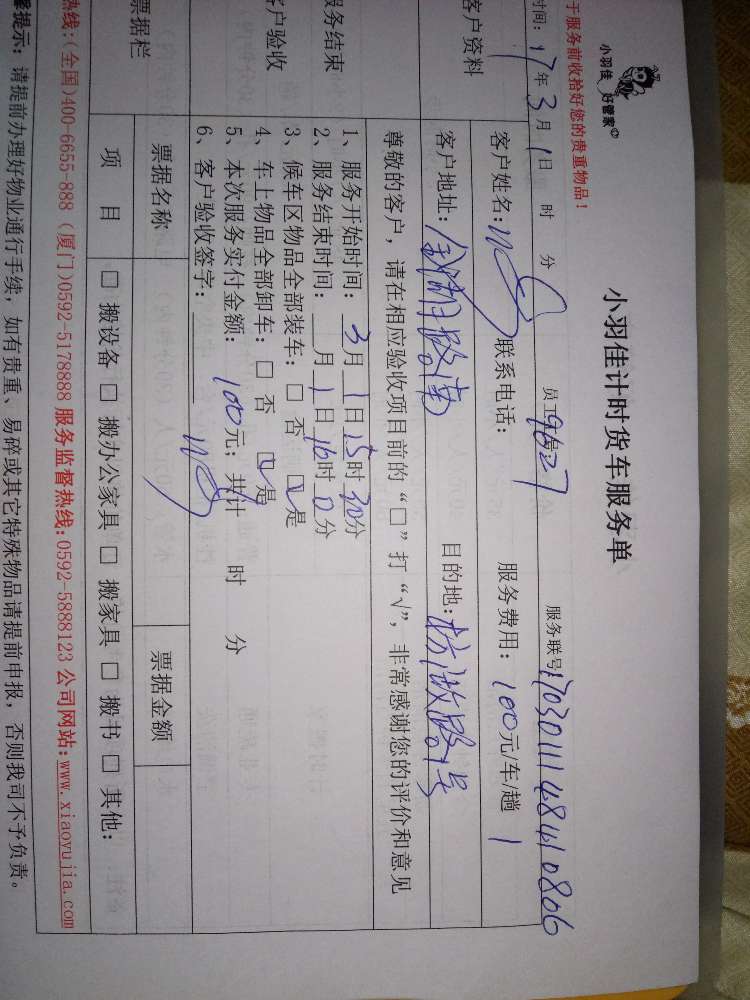 小羽佳 好管家
于服务前收拾好您的贵重物品!
小羽佳计时货车服务单
时间: 17年3月1日 时 分 员工 9627 服务联号
客户资料
客户姓名: 联系电话: 服务费用: 100元/车/趟 1
客户地址: 南 目的地:
尊敬的客户, 请在相应验收项目前的“□”打“√”, 非常感谢您的评价和意见
服务结束
客户验收
1、服务开始时间: 3月1日15时30分
2、服务结束时间: 月1日16时0分
3、候车区物品全部装车: □ 否 ☑ 是
4、车上物品全部卸车: □ 否 ☑ 是
5、本次服务实付金额: 100元; 共计 时 分
6、客户验收签字:
票据栏
票据名称 票据金额
项 目 □ 搬设备 □ 搬办公家具 □ 搬家具 □ 搬书 □ 其他:
热线:(全国)400-6655-888 (厦门)0592-5178888 服务监督热线:0592-5888123 公司网站:www.xiaoyujia.com
馨提示: 请提前办理好物业通行手续, 如有贵重、易碎或其它特殊物品请提前申报, 否则我司不予负责。